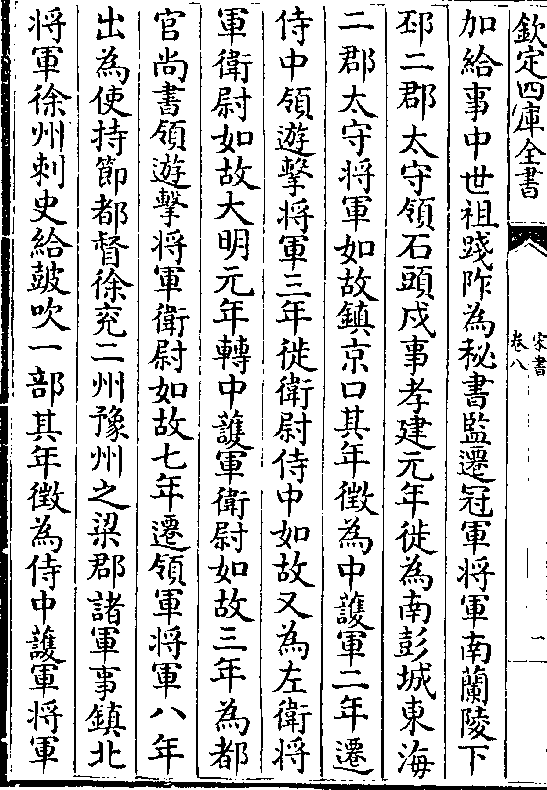 欽定四庫全書
宋書
卷八
一
加給事中世祖踐阼為秘書監遷冠軍將軍南蘭陵下
邳二郡太守領石頭戍事孝建元年徙為南彭城東海
二郡太守將軍如故鎮京口其年徵為中護軍二年遷
侍中領遊擊將軍三年徙衛尉侍中如故又為左衛將
軍衛尉如故大明元年轉中護軍衛尉如故三年為都
官尚書領遊擊將軍衛尉如故七年遷領軍將軍八年
出為使持節都督徐兗二州豫州之梁郡諸軍事鎮北
將軍徐州刺史給鼓吹一部其年徵為侍中護軍將軍